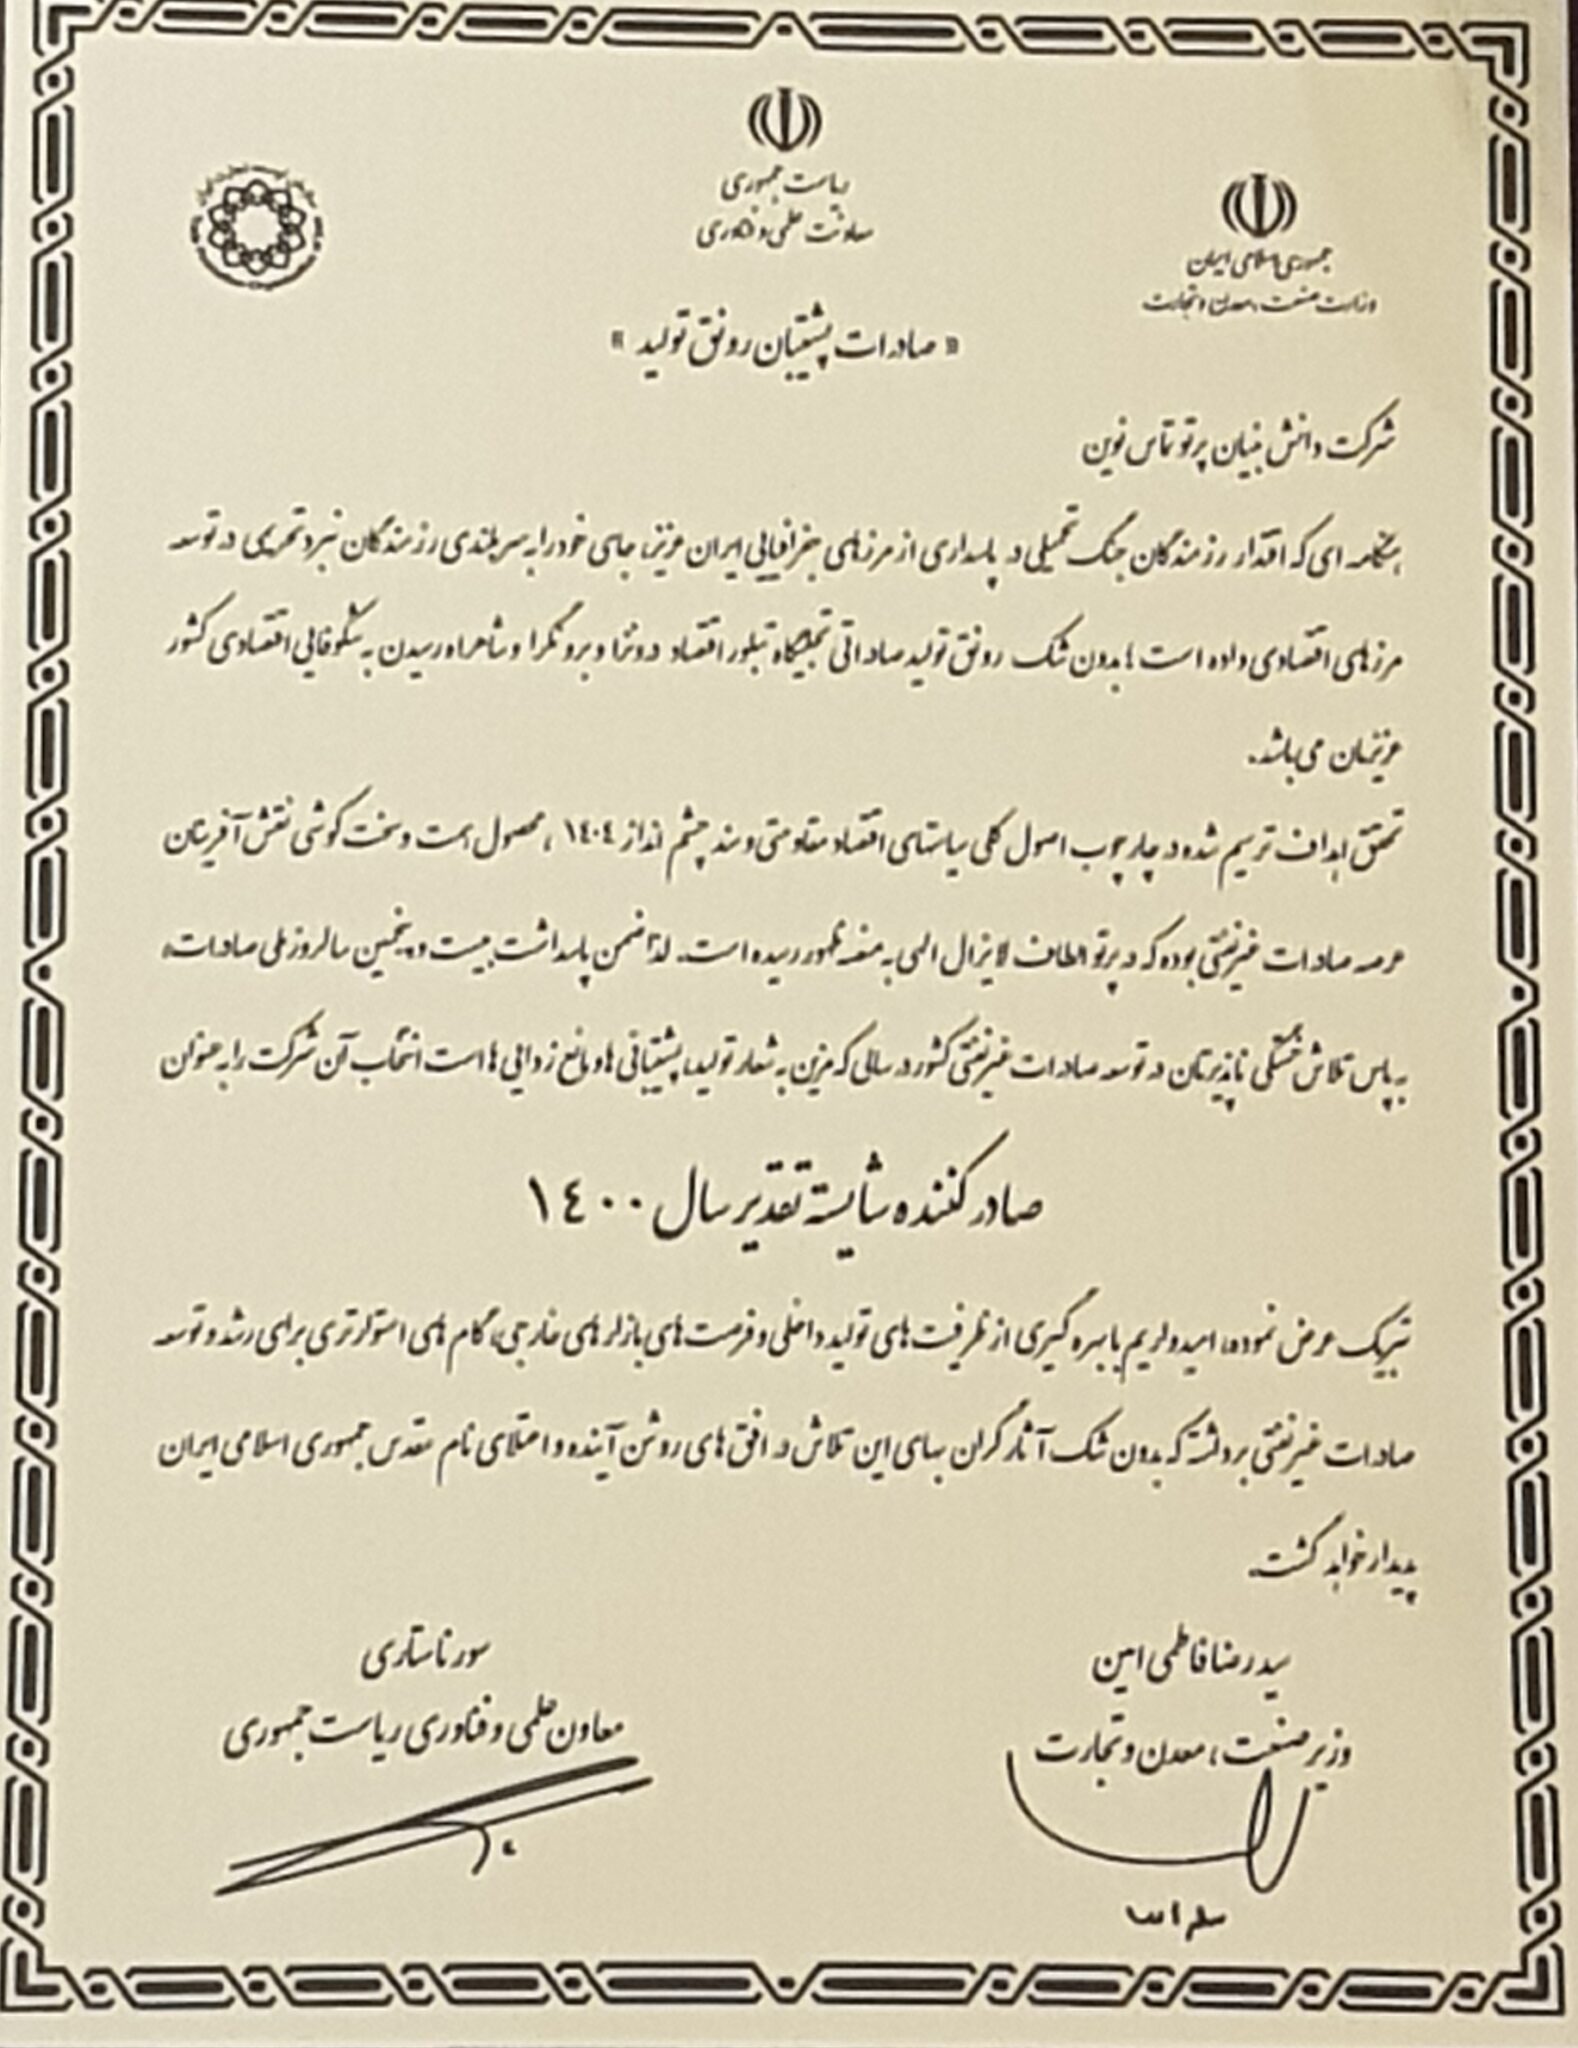 ریاست جمهوری
معاونت علمی و فناوری
جمهوری اسلامی ایران
وزارت صنعت، معدن و تجارت
« صادرات پشتیبان رونق تولید »
شرکت دانش بنیان پرتو تماس نوین
هنگامه ای که اقتدار رزمندگان جنگ تحمیلی در پاسداری از مرزهای جغرافیایی ایران عزیز، جای خود را به سربلندی رزمندگان نبرد تحریمی در توسعه
مرزهای اقتصادی داده است؛ بدون شک رونق تولید صادراتی تجلیگاه تبلور اقتصاد درونزا و برونگرا و شاهراه رسیدن به شکوفایی اقتصادی کشور
عزیزمان می باشد.
تحقق اهداف ترسیم شده در چارچوب اصول کلی سیاستهای اقتصاد مقاومتی و سند چشم انداز ۱٤۰٤ ، محصول همت و سخت کوشی نقش آفرینان
عرصه صادرات غیرنفتی بوده که در پرتو الطاف لایزال الهی به منصه ظهور رسیده است. لذا ضمن پاسداشت بیست و پنجمین سالروز ملی صادرات،
به پاس تلاش خستگی ناپذیرتان در توسعه صادرات غیرنفتی کشور در سالی که مزین به شعار تولید، پشتیبانی ها و مانع زدایی ها است انتخاب آن شرکت را به عنوان
صادرکننده شایسته تقدیر سال ۱٤۰۰
تبریک عرض نموده، امیدواریم با بهره گیری از ظرفیت های تولید داخلی و فرصت های بازارهای خارجی، گام های استوارتری برای رشد و توسعه
صادرات غیرنفتی برداشته که بدون شک آثار گران بهای این تلاش در افق های روشن آینده و اعتلای نام مقدس جمهوری اسلامی ایران
پدیدار خواهد گشت.
سید رضا فاطمی امین
وزیر صنعت، معدن و تجارت
سورنا ستاری
معاون علمی و فناوری ریاست جمهوری